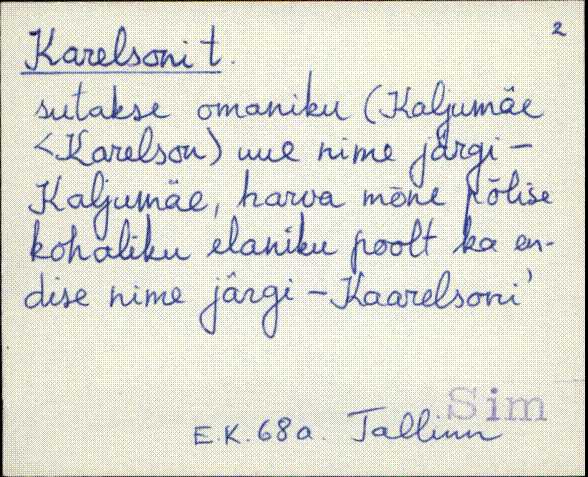 2
Karelsoni t.
sutakse omaniku (Kaljumäe
<Karelson) uue nime järgi –
Kaljumäe, harva mõne põlise
kohaliku elaniku poolt ka en-
dise nime järgi – Kaarelsoni'
Sim
E.K. 68a. Tallinn